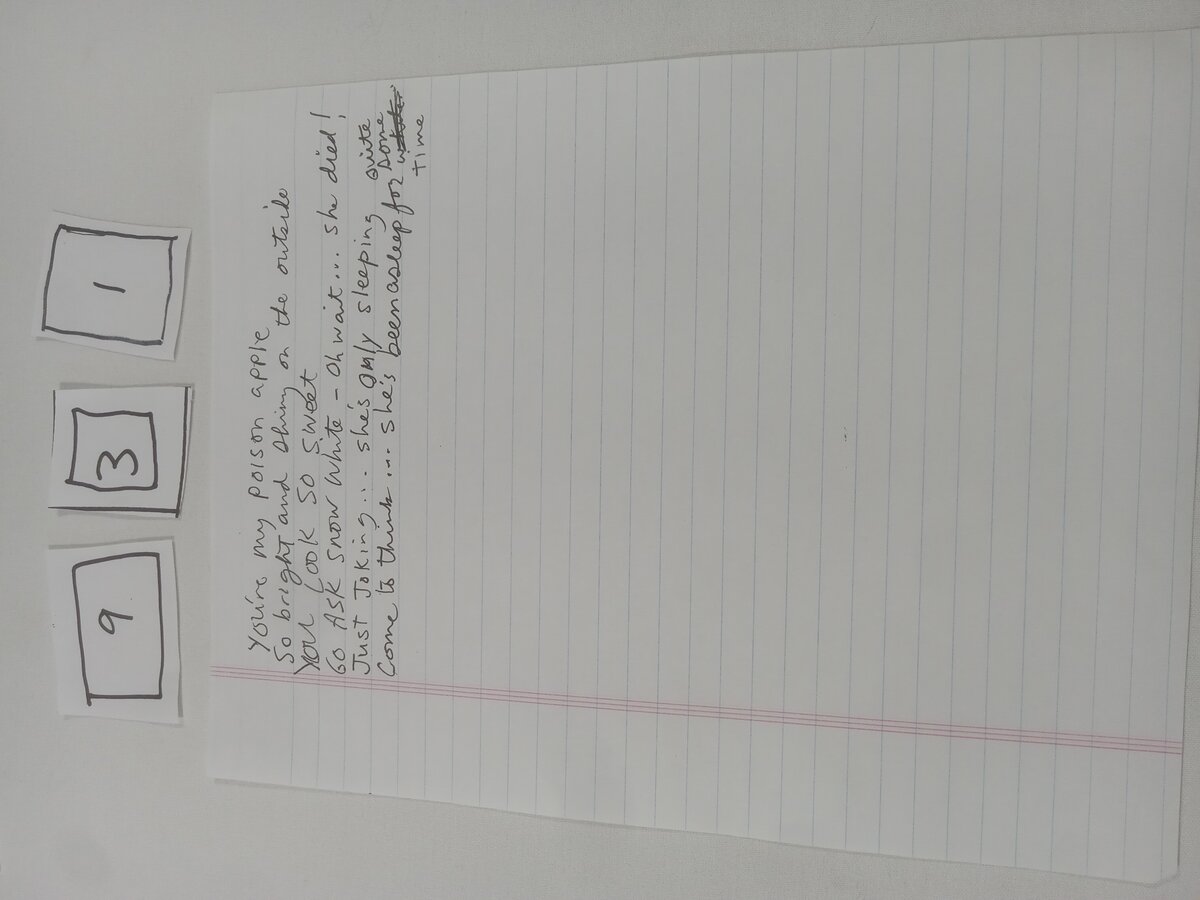 9 3 1
You're my poison apple
So bright and shiny on the outside
You look so sweet
Go Ask snow white - Oh wait... she died!
Just Joking... she's only sleeping
Come to think... she's been asleep for quite some
time